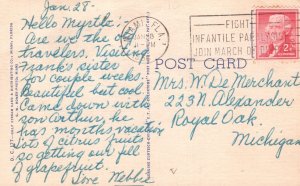 Jan. 28-
Hello Myrtle:-
Are we the
travelers. Visiting
Frank's sister
for couple weeks.
Beautiful but cool.
Came down with
son Arthur, he
has months vacation
Lots of citrus fruits
so getting our fill
of grapefruit.
Love Nettie
FLA.
FIGHT
INFANTILE PARALYSIS
JOIN MARCH OF
POST CARD
Mrs. W. De Merchant
223 N. Alexander
Royal Oak.
Michigan